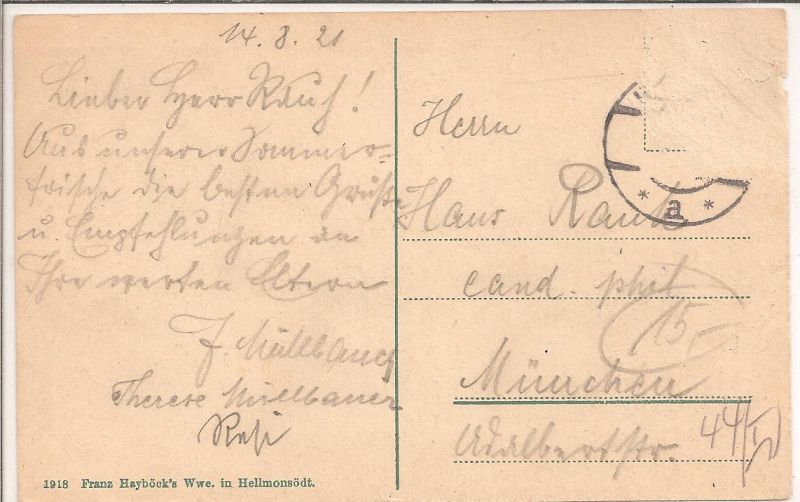 14. 8. 21
Lieber Herr Rauch!
Aus unserer Sommer-
frische die besten Grüße
u. Empfehlungen an
Ihre werten Eltern
J. Müllbauer
Therese Müllbauer
Resi
Herrn
Hans Rauch
cand. phil
15.-
München
Adalbertstr. 44/I
a
1918 Franz Hayböck's Wwe. in Hellmonsödt.